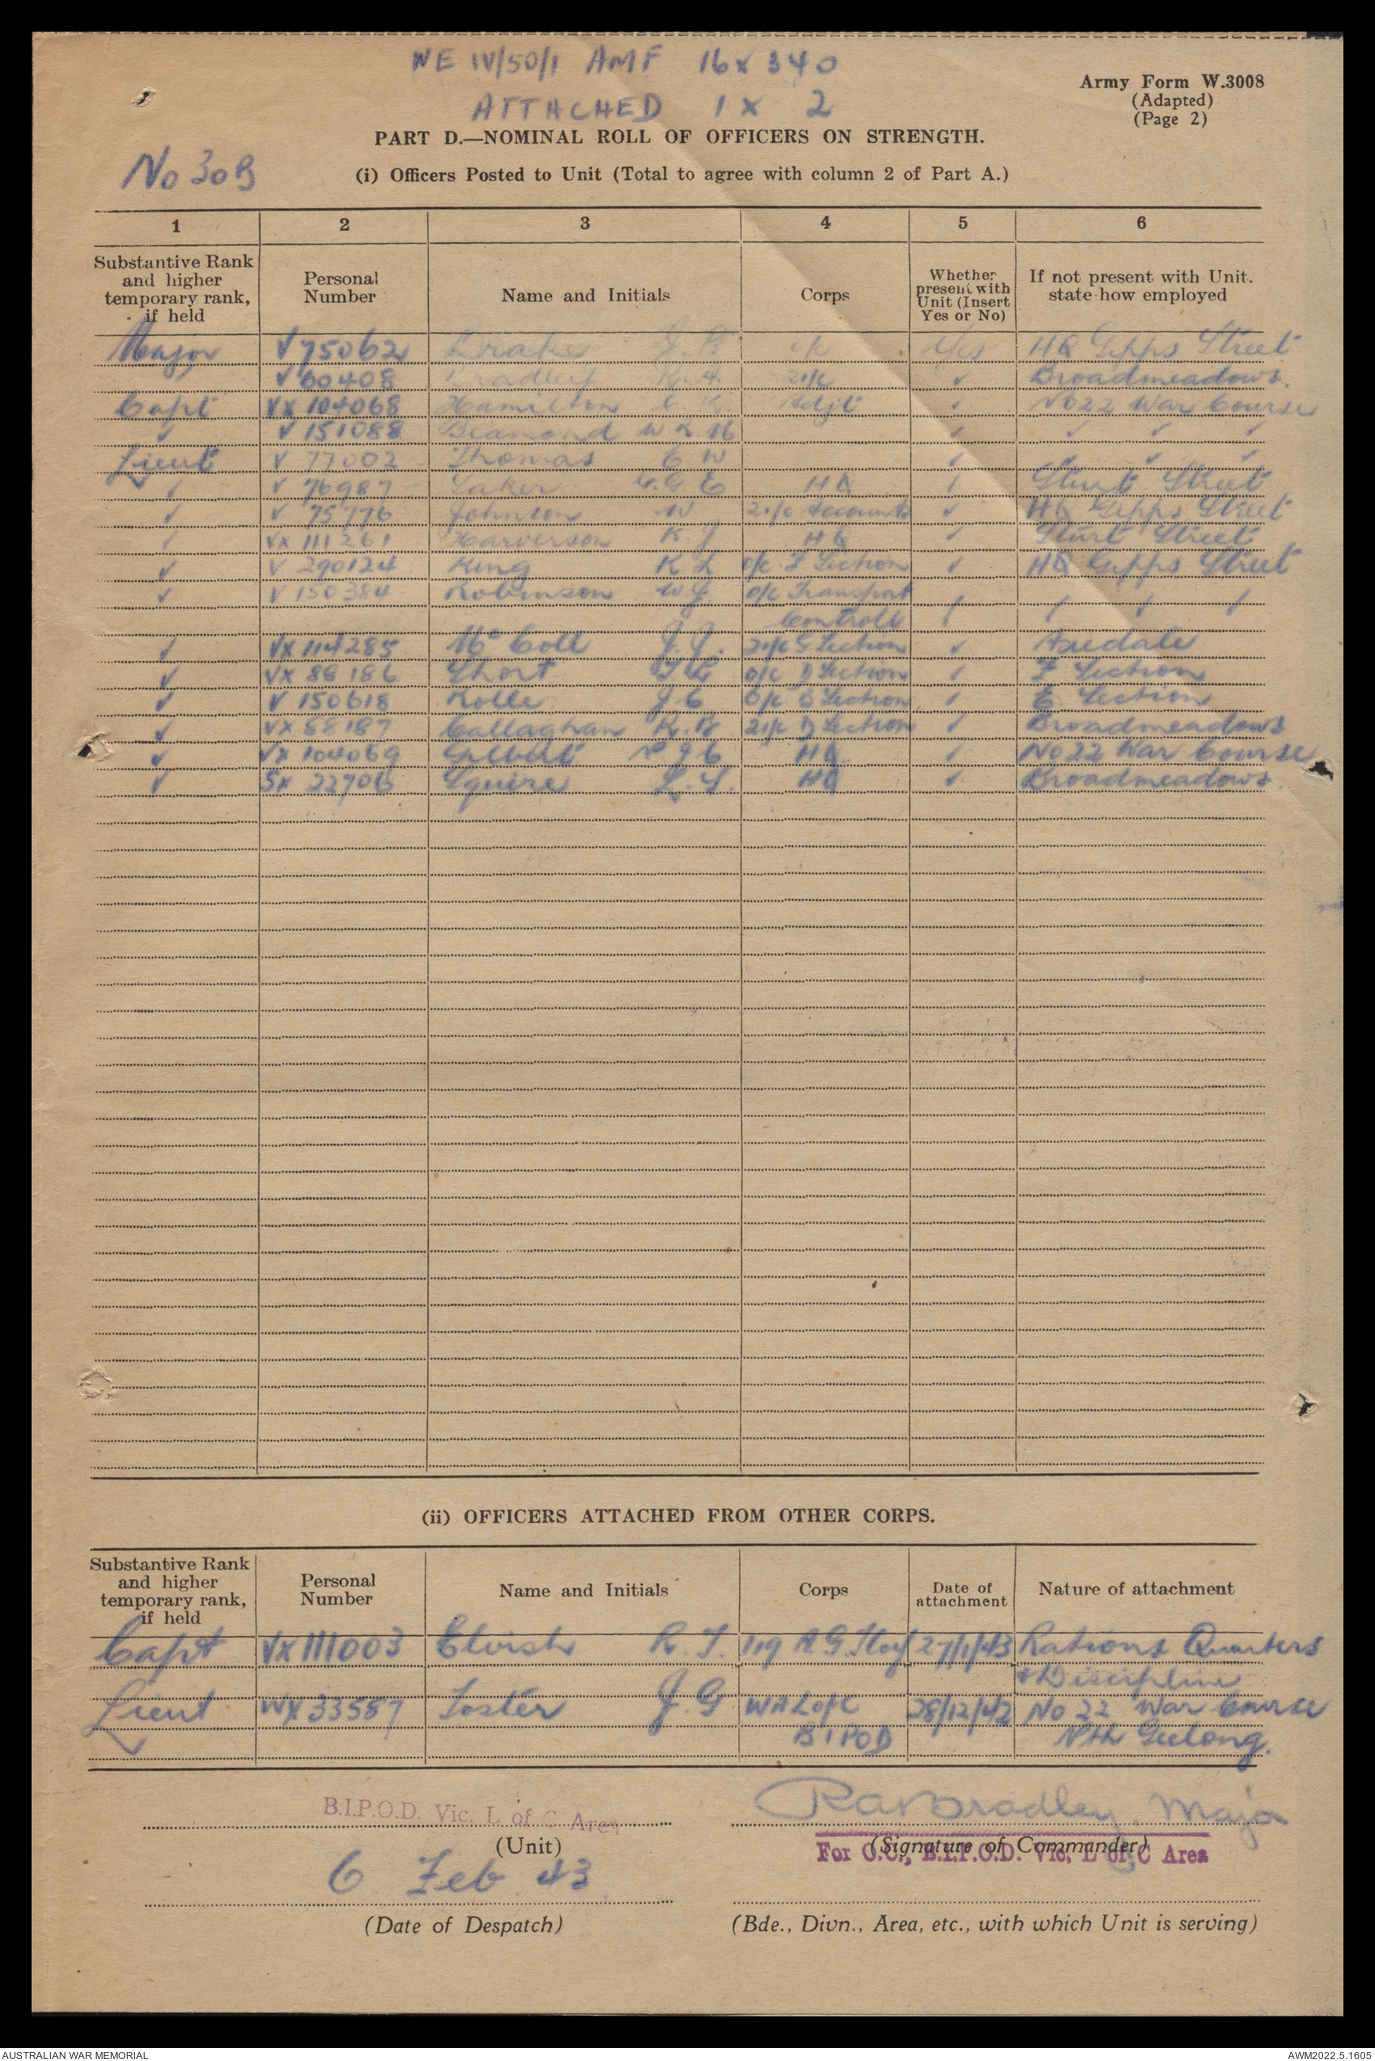 WE IV/50/1 AMF 16 x 340
ATTACHED 1 x 2
Army Form W.3008
(Adapted)
(Page 2)
PART D.—NOMINAL ROLL OF OFFICERS ON STRENGTH.
No 30B
(i) Officers Posted to Unit (Total to agree with column 2 of Part A.)
1 2 3 4 5 6
Substantive Rank and higher temporary rank, if held Personal Number Name and Initials Corps Whether present with Unit (Insert Yes or No) If not present with Unit. state how employed
Major V75062 Drake J. Yes HQ Gipps Street
V60408 Bradley R. A. 2i/c ✓ Broadmeadows.
Capt VX 104068 Hamilton Adjt ✓ No 22 War Course
✓ V 151088 Diamond ✓ ✓ ✓ ✓
Lieut V 77002 Thomas E W ✓ ✓ ✓
✓ V 76987 Laker G. G E HQ ✓ Sturt Street
✓ V 75776 Johnson W 2i/c Accounts ✓ HQ Gipps Street
✓ VX 111261 Harverson K J HQ ✓ Sturt Street
✓ V 290124 King K L o/c F Section ✓ HQ Gipps Street
✓ V 150384 Robinson W J o/c Transport
Controll ✓ ✓ ✓ ✓
✓ VX 114285 McColl J. J. 2i/c G Section ✓ Axedale
✓ VX 88186 Short o/c D Section ✓ F Section
✓ V 150618 Rolle J C O/c E Section ✓ E Section
✓ VX 88187 Callaghan K. 2i/c D Section ✓ Broadmeadows
✓ VX 104069 Gilbert J C HQ ✓ No 22 War Course
✓ SX 22906 Squire L. L. HQ ✓ Broadmeadows.
(ii) OFFICERS ATTACHED FROM OTHER CORPS.
Substantive Rank and higher temporary rank, if held Personal Number Name and Initials Corps Date of attachment Nature of attachment
Capt VX111003 Elvish R. T. 119 A.G.Hosp 27/1/43 Rations Quarters
& Discipline
Lieut WX 33587 Foster J. G WA L of C 28/12/42 No 22 War Course
BIPOD Nth Geelong.
B.I.P.O.D. Vic. L of C Area
(Unit)
RA Bradley. Major
(Signature of Commander)
For O.C., B.I.P.O.D. Vic. L of C Area
6 Feb 43
(Date of Despatch)
(Bde., Divn., Area, etc., with which Unit is serving)
AUSTRALIAN WAR MEMORIAL
AWM2022.5.1605